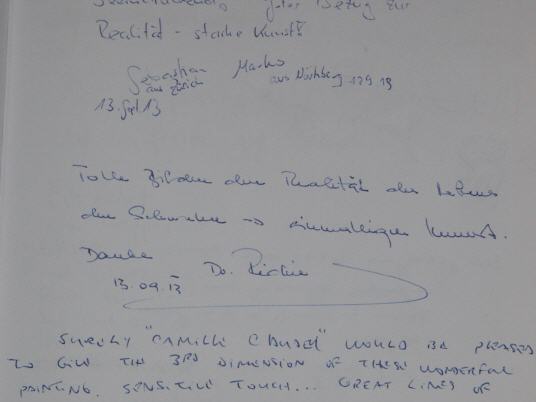 guter Bezug zur
Realität - starke Kunst!
Sebastian Marko
aus Zürich aus Nürnberg 129.13
13. Sept 13
Tolle Bilder der Realität des Lebens
der Schweizer -> einmaligen Kunst.
Danke Dr. Richie
13.09.13
SURELY "CAMILLE CLAUDEL" WOULD BE PLEASED
TO GIVE TH 3RD DIMENSION OF THESE WONDERFUL
PAINTING. SENSITIVE TOUCH... GREAT LINES OF